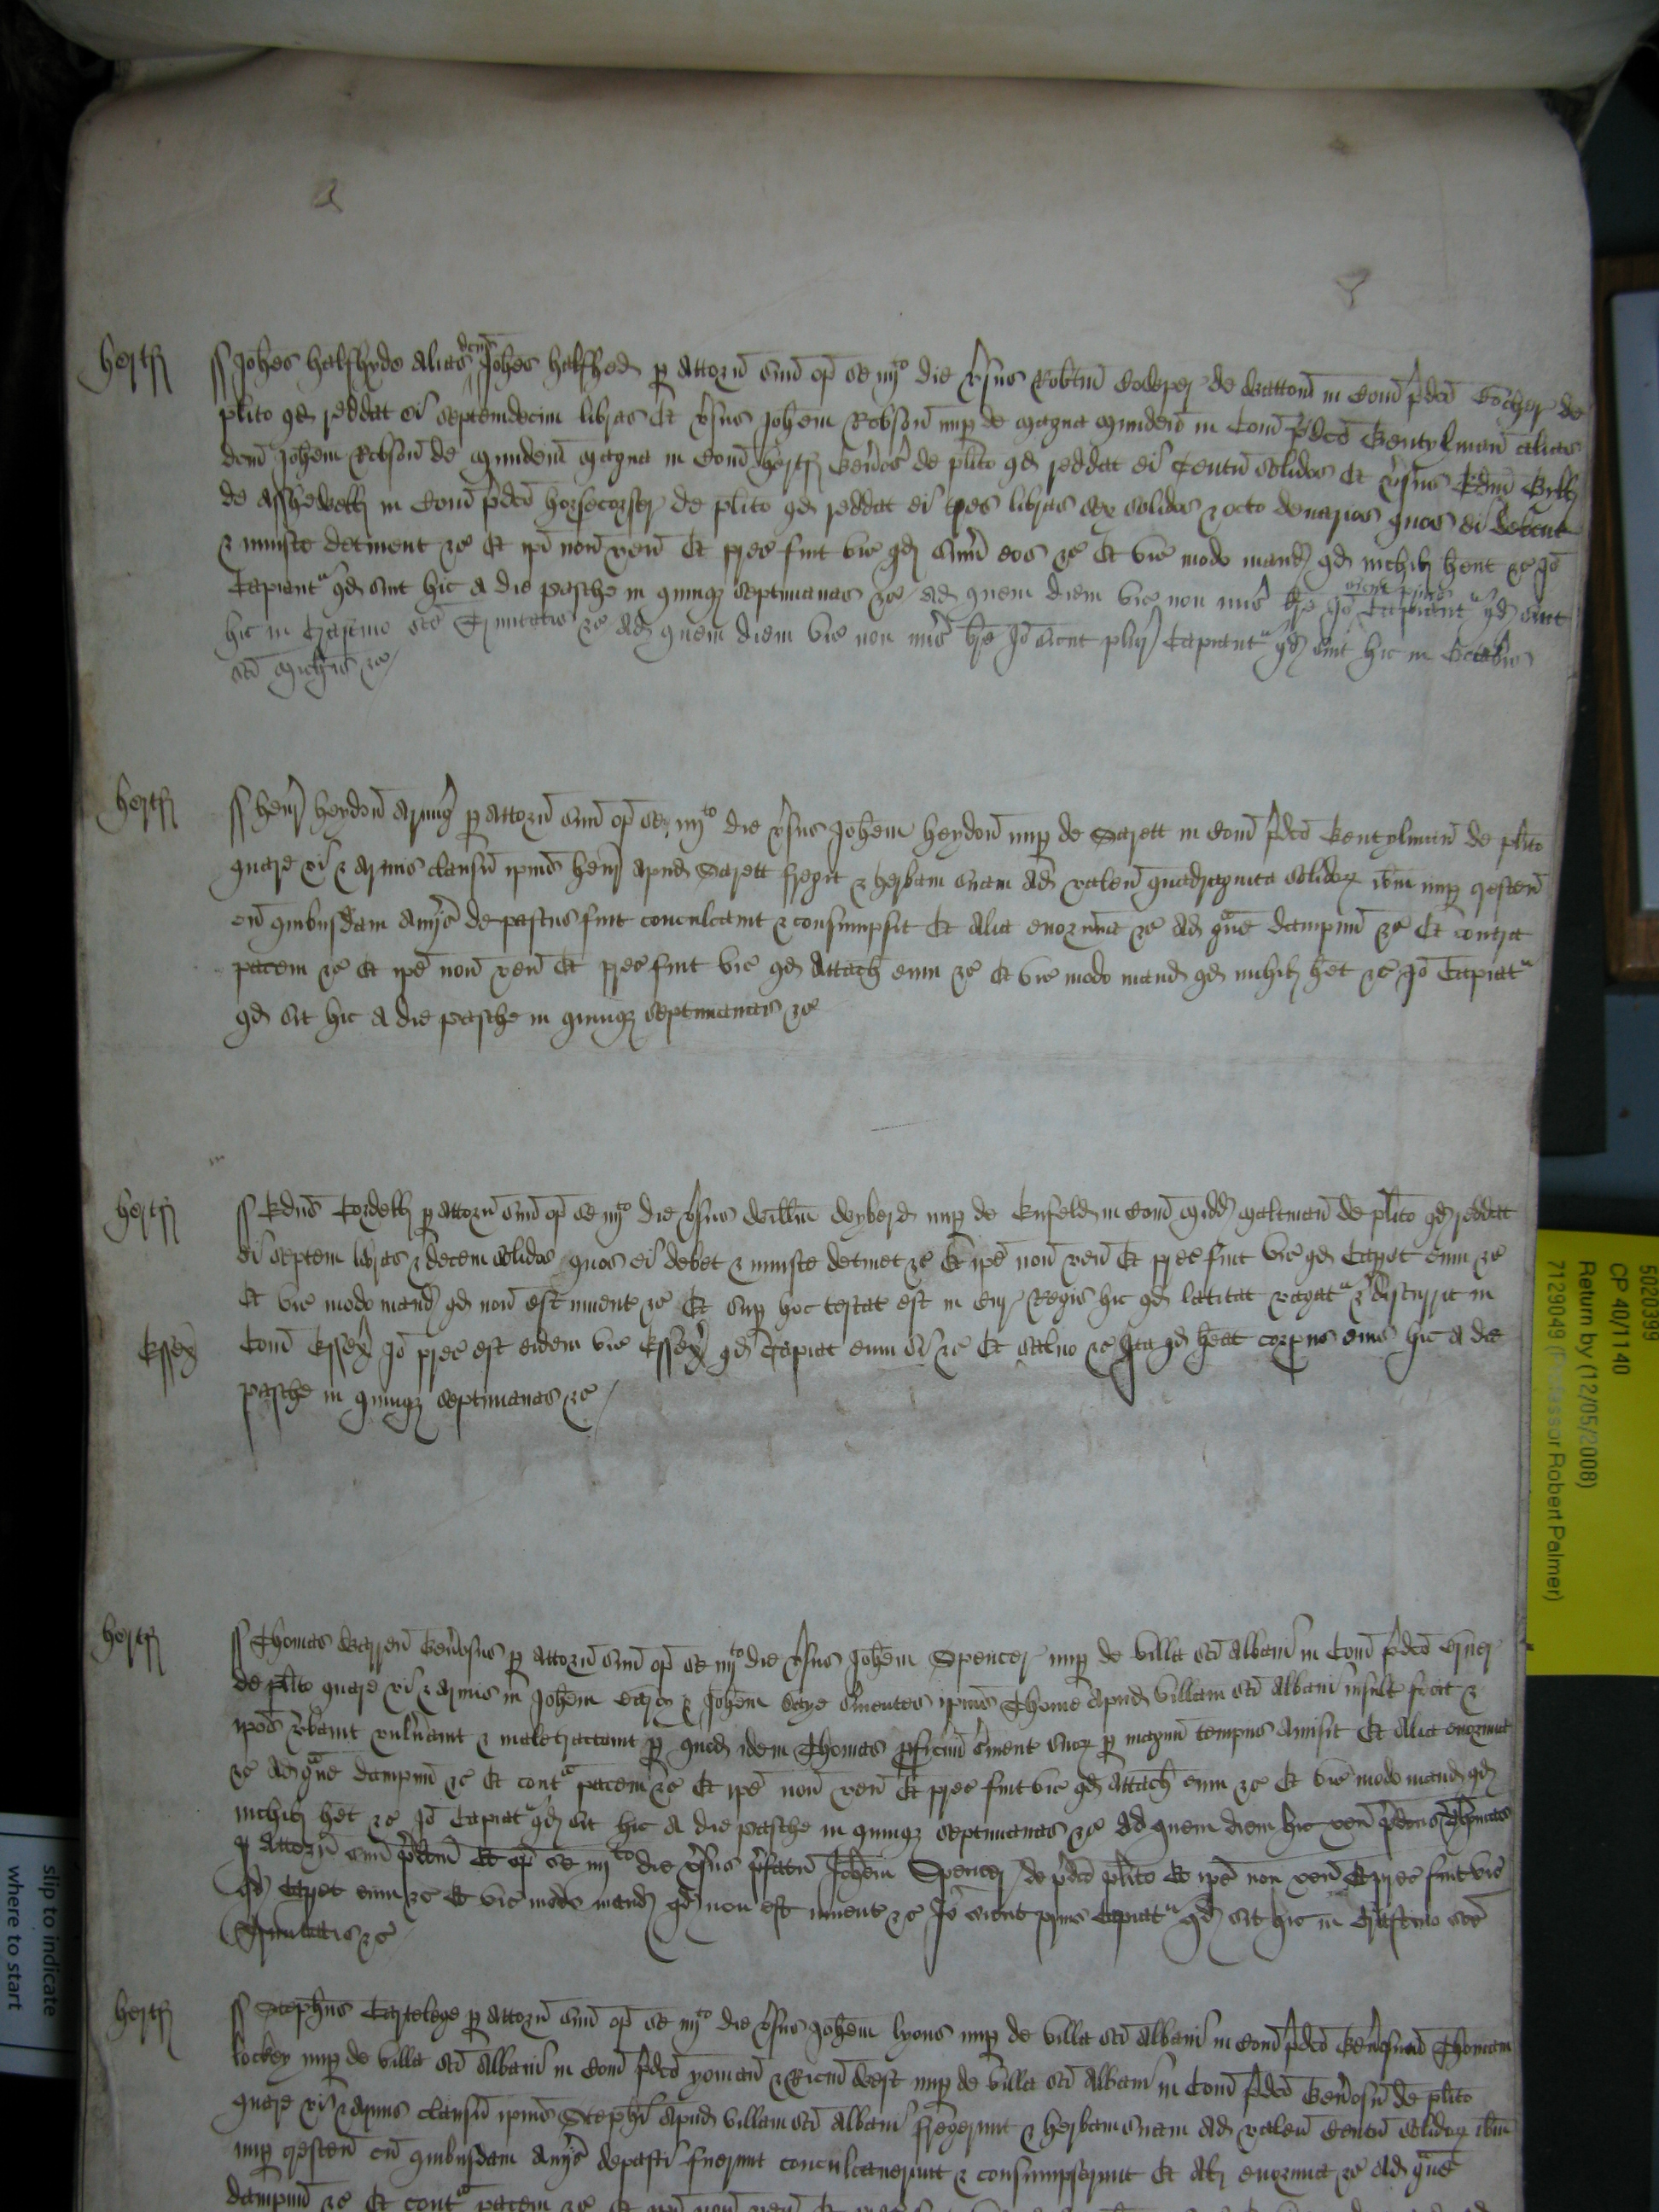 Hertf
ss Johes Halfhyde alias dcus Johes Halfhed p attorn suu op se iiijto die vsus Robtm Cowper de Watton in Com pdco Bocher de
plito qd reddat ei septemdecim libras Et vsus Johem Robson nup de magna Munden in Com pdco Gentylman alias
dcm Johem Robson de Munden magna in Com Hertf Genos de plito qd reddat ei Centu solidos Et vsus Edm
de Asshewell in Com pdco horsecorser de plito qd reddat ei tres libras sex solidos & octo denarios quos ei debent
& iniuste detinent &c Et ipi non ven Et prec fuit vic qd sum eos &c Et vic modo mand qd nichil hent &c Io
Capiant qd sint hic a die pasche in quinq septimanas &c Ad quem diem vic non mis bre Io sicut prius Capiant qd sint
hic in Crastino sce Trinitatis &c Ad quem diem vic non mis bre Io sicut plur Capiant qd sint hic in Octabis
sci Michis &c
Hertf
ss Henr Heydon Armig p attorn suu op se iiijto die vsus Johem Heydon nup de Sarett in Com pdco Gentylman de plito
quare vi & armis clausu ipius Henr apud Sarett fregit & herbam suam ad valen quadraginta solidor ibm nup crescen
cu quibusdam aniis depastus fuit conculcauit & consumpsit Et alia enormia &c Ad graue dampnu &c Et contra
pacem &c Et ipe non ven Et prec fuit vic qd attach eum &c Et vic modo mand qd nichil het &c Io Capiat
qd sit hic a die pasche in quinq septimanas &c
Hertf
ss Edus Cordell p attorn suu op se iiijto die vsus Willm Wyberd nup de Enfeld in Com Midd Maltman de plito qd reddat
ei septem libras & decem solidos quos ei debet & iniuste detinet &c Et ipe non ven Et prec fuit vic qd Capet eum &c
Et vic modo mand qd non est inuent &c Et sup hoc testat est in Cur Regis hic qd latitat vagat & discurrit in
Essex
Com Essex Io prec est eidem vic Essex qd Capiat eum si &c Et saluo &c Ita qd heat corpus eius hic a die
pasche in quinq septimanas &c
Hertf
ss Thomas Warren Genosus p attorn suu op se iiijto die vsus Johem Spencer nup de villa sci Albani in Com pdco
de plito quare vi & armis in Johem & Johem Saye seruientes ipius Thome apud villam sci Albani insult fecit &
ipos vbauit vulnauit & maletractauit p quod idem Thomas pficuu suient suor p magnu tempus amisit Et alia enormia
&c Ad graue dampnu &c Et cont pacem &c Et ipe non ven Et prec fuit vic qd attach eum &c Et vic modo mand qd
nichil het &c Io Capiat qd sit hic a die pasche in quinq septimanas &c Ad quem diem hic ven pdcus Thomas
p attorn suu pdcm Et op se iiijto die vsus pfatu Johem Spencer de pdco plito Et ipe non ven Et prec fuit vic
qd Capet eum &c Et vic modo mand qd non est inuent &c Io sicut prius Capiat qd sit hic in Crastino sce
Trinitatis &c
Hertf
ss Stephus Cartelege p attorn suu op se iiijto die vsus Johem Lyons nup de villa sci Albani in Com pdco Genosum Thomam
lockey nup de villa sci Albani in Com pdco yoman & Ricm West nup de villa sci Albani in Com pdco Genosu de plito
quare vi & armis clausu ipius Stephi apud villam sci Albani fregerunt & herbam suam ad valen Centu solidor ibm
nup crescen cu quibusdam aniis depasti fuerunt conculcauerunt & consumpserunt Et alia enormia &c Ad graue
dampnu &c Et cont pacem &c Et ipi non ven Et prec fuit
5020399
CP 40/1140
Return by (12/05/2008)
7129049 (Professor Robert Palmer)
slip to indicate
where to start